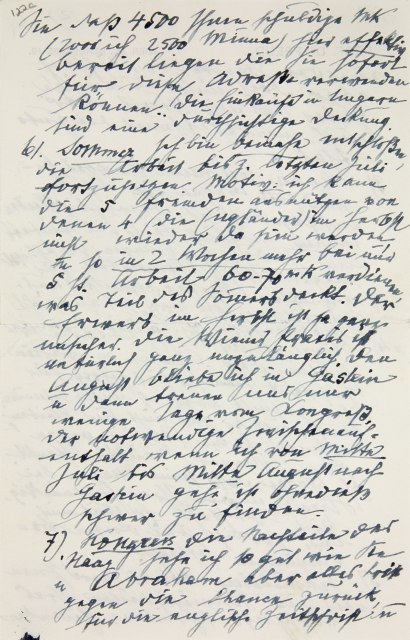 122c
Sie daß 4500 Ihnen schuldige Mk
(2000 ich 2500 Minna) hier effektiv
bereit liegen die Sie sofort
für diese Adresse verwenden
können, die Einkäufe in Ungarn
sind eine durchsichtige Deckung.
6). Sommer. Ich bin beinahe entschlossen,
die Arbeit bis z. letzten Juli
fortzusetzen. Motiv: ich kann
die 5 Fremden ausnützen von
denen 4 die (Engländer) im Herbst
nicht wieder da sein werden
u so in 2 Wochen mehr bei nur
5 st Arbeit 60-70 Mk verdienen
was Teil des Sommers deckt. Der
Erwerb im Herbst ist ja ganz
unsicher. Die Wiener Praxis ist
natürlich ganz unzulänglich. Den
August bliebe ich in Gastein
u dann trennen uns nur
wenige Tage vom Kongreß.
Der notwendige Zwischenauf-
enthalt wenn ich von Mitte
Juli bis Mitte August nach
Gastein gehe, ist ohnedieß
schwer zu finden.
7). Kongress Die Nachteile des
Haag sehe ich so gut wie Sie
u Abraham aber alles tritt
gegen die Chance zurück
für die englische Zeitschrift u